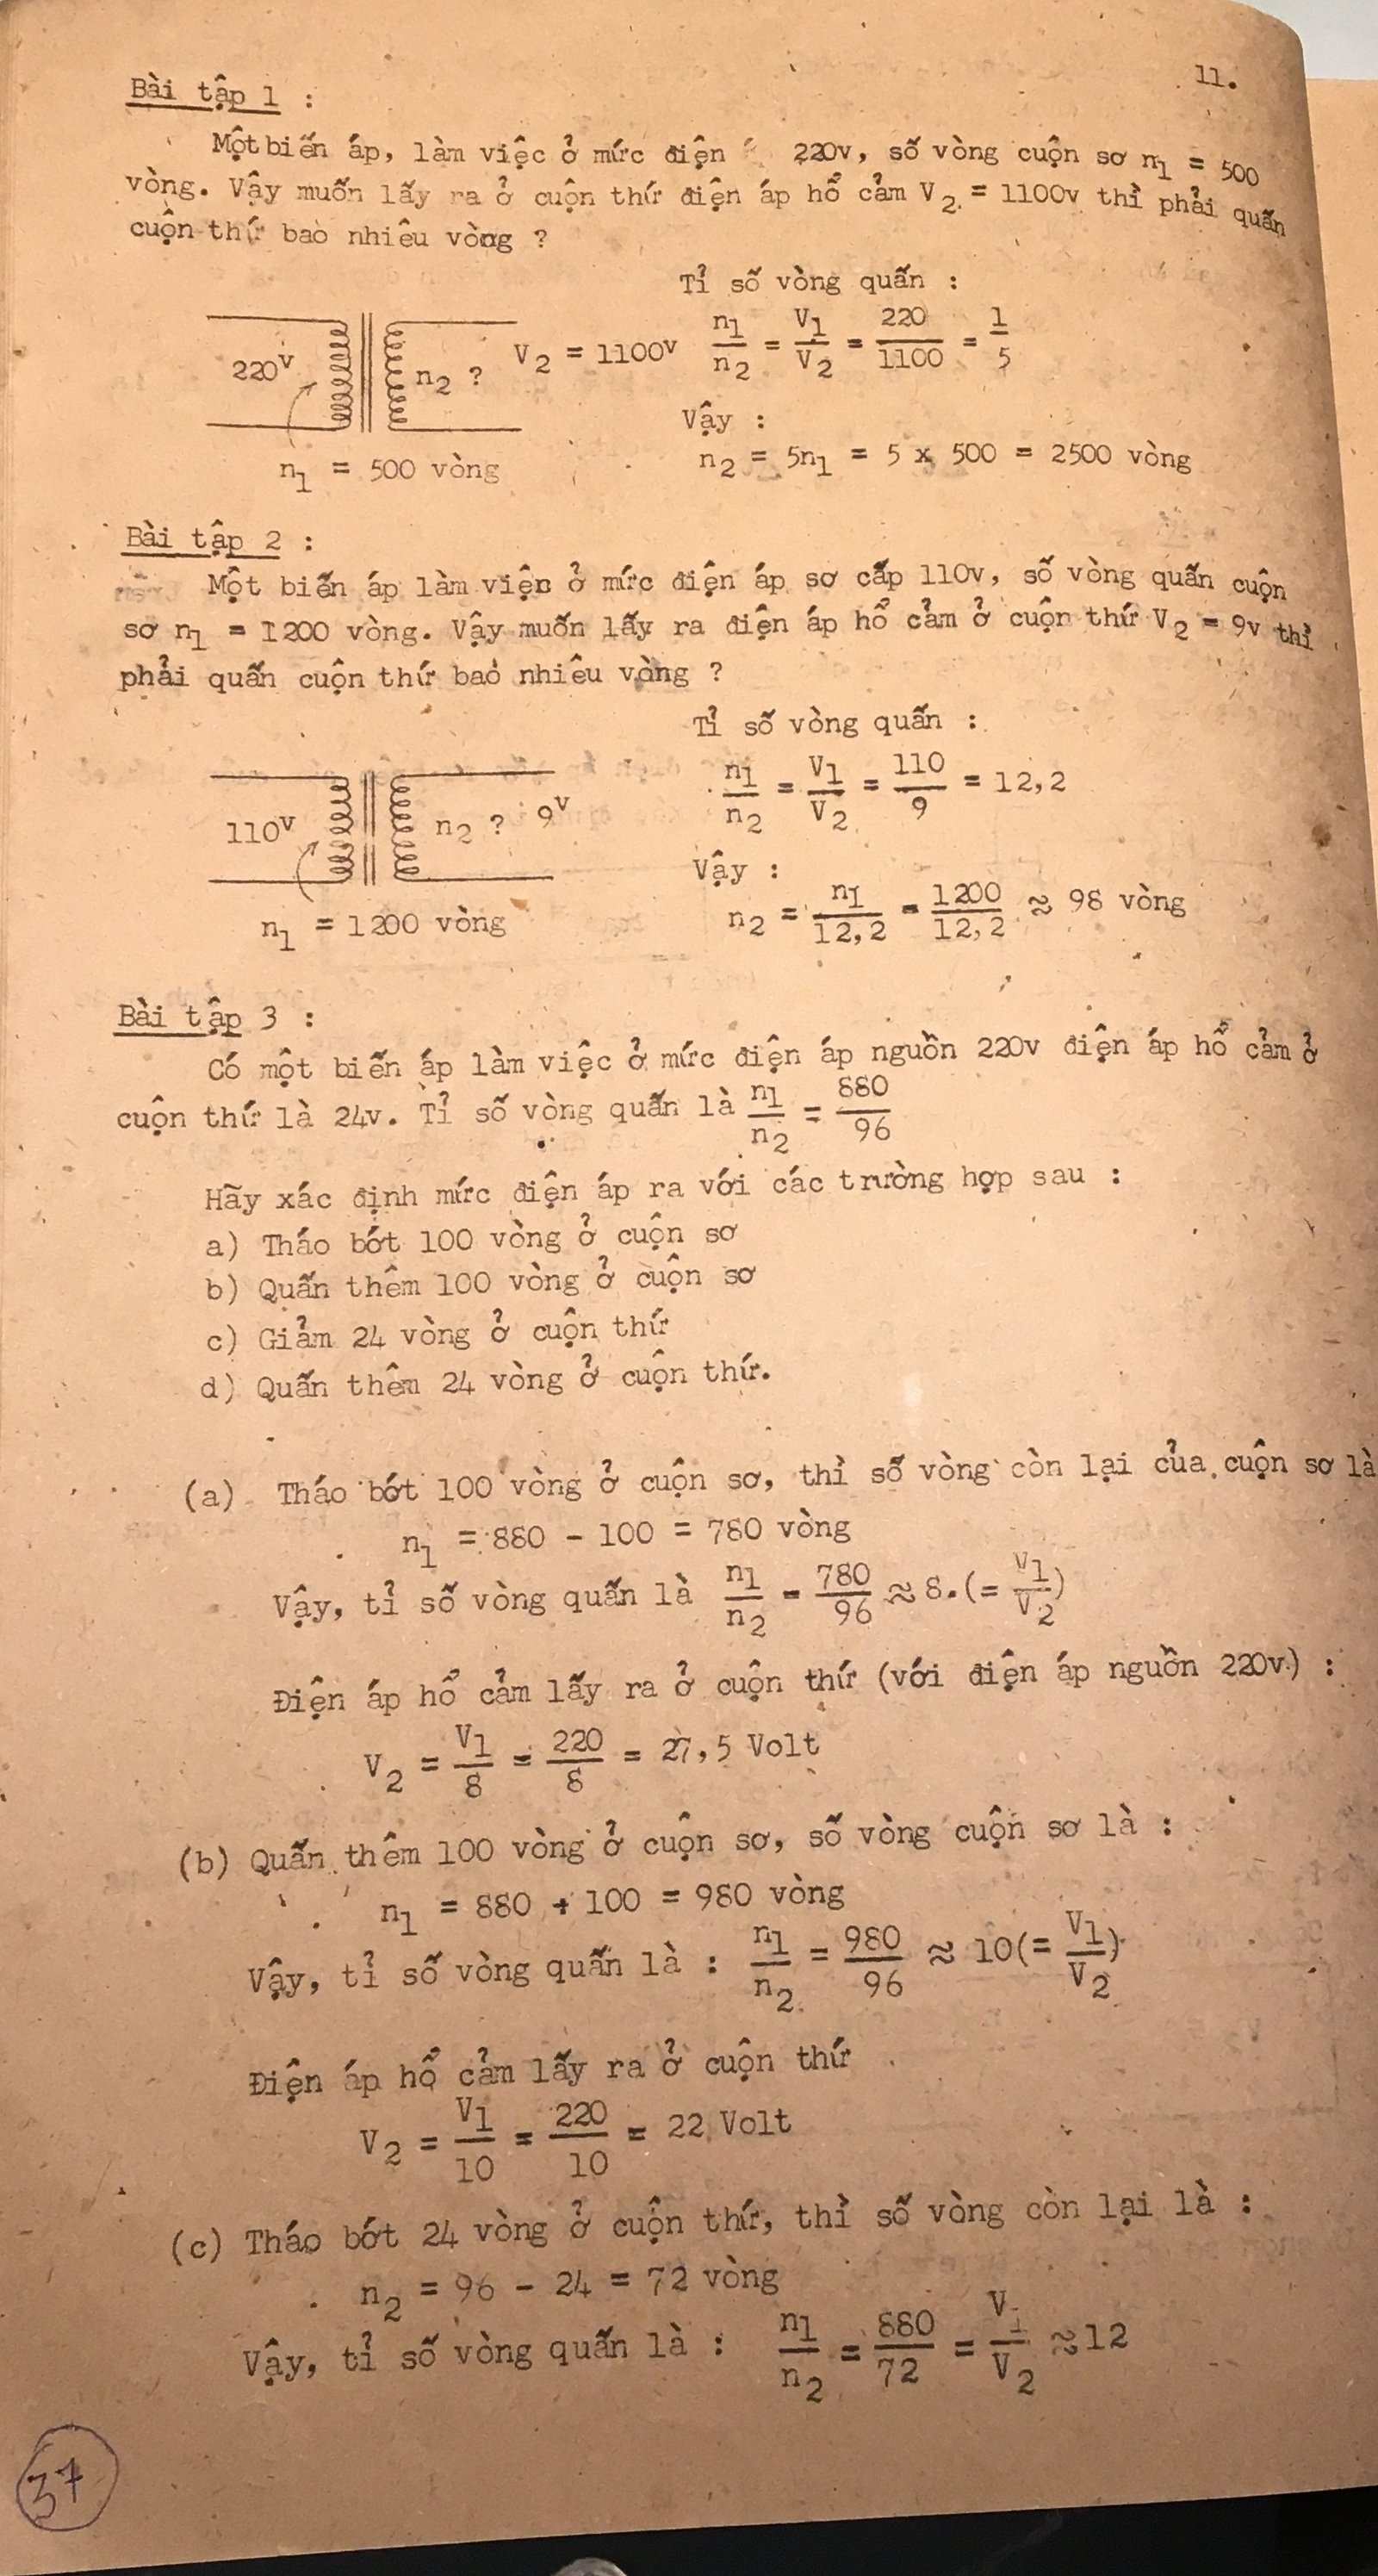 11.
Bài tập 1 :
Một biến áp, làm việc ở mức điện 220v, số vòng cuộn sơ n1 = 500
vòng. Vậy muốn lấy ra ở cuộn thứ điện áp hổ cảm V2 = 1100v thì phải quấn
cuộn thứ bao nhiêu vòng ?
Tỉ số vòng quấn :
220v n2 ? V2 = 1100v n1/n2 = V1/V2 = 220/1100 = 1/5
Vậy :
n1 = 500 vòng n2 = 5n1 = 5 x 500 = 2500 vòng
Bài tập 2 :
Một biến áp làm việc ở mức điện áp sơ cấp 110v, số vòng quấn cuộn
sơ n1 = 1200 vòng. Vậy muốn lấy ra điện áp hổ cảm ở cuộn thứ V2 = 9v thì
phải quấn cuộn thứ bao nhiêu vòng ?
Tỉ số vòng quấn :
110v n2 ? 9v n1/n2 = V1/V2 = 110/9 = 12,2
Vậy :
n1 = 1200 vòng n2 = n1/12,2 = 1200/12,2 ≈ 98 vòng
Bài tập 3 :
Có một biến áp làm việc ở mức điện áp nguồn 220v điện áp hổ cảm ở
cuộn thứ là 24v. Tỉ số vòng quấn là n1/n2 = 880/96
Hãy xác định mức điện áp ra với các trường hợp sau :
a) Tháo bớt 100 vòng ở cuộn sơ
b) Quấn thêm 100 vòng ở cuộn sơ
c) Giảm 24 vòng ở cuộn thứ
d) Quấn thêm 24 vòng ở cuộn thứ.
(a) Tháo bớt 100 vòng ở cuộn sơ, thì số vòng còn lại của cuộn sơ là
n1 = 880 - 100 = 780 vòng
Vậy, tỉ số vòng quấn là n1/n2 = 780/96 ≈ 8.(= V1/V2)
Điện áp hổ cảm lấy ra ở cuộn thứ (với điện áp nguồn 220v) :
V2 = V1/8 = 220/8 = 27,5 Volt
(b) Quấn thêm 100 vòng ở cuộn sơ, số vòng cuộn sơ là :
n1 = 880 + 100 = 980 vòng
Vậy, tỉ số vòng quấn là : n1/n2 = 980/96 ≈ 10(= V1/V2)
Điện áp hổ cảm lấy ra ở cuộn thứ
V2 = V1/10 = 220/10 = 22 Volt
(c) Tháo bớt 24 vòng ở cuộn thứ, thì số vòng còn lại là :
n2 = 96 - 24 = 72 vòng
Vậy, tỉ số vòng quấn là : n1/n2 = 880/72 = V1/V2 ≈ 12
37